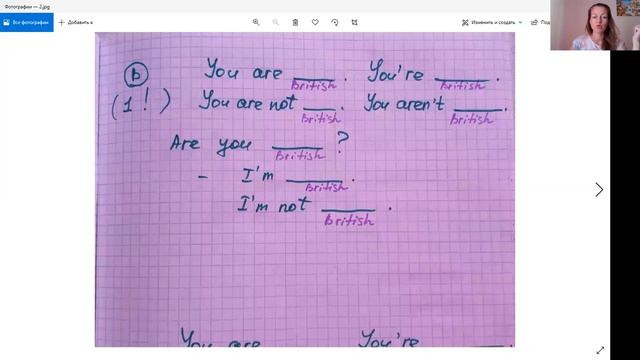 Фотографии — 2.jpg
Все фотографии
Добавить к
Изменить и создать
B You are ____. You're ____.
British British
(1!) You are not ____. You aren't ____.
British British
Are you ____?
British
- I'm ____.
British
I'm not ____.
British
You are You're